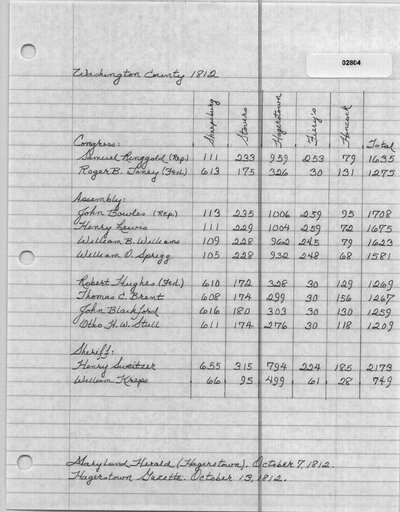 02804
Washington County 1812
Sharpsburg Stovers Hagerstown Fiery's Hancock Total
Congress:
Samuel Ringgold (Rep) 111 233 959 253 79 1635
Roger B. Taney (Fed.) 613 175 326 30 131 1275
Assembly:
John Bowles (Rep) 113 235 1006 259 95 1708
Henry Lewis 111 229 1004 259 72 1675
William B. Williams 109 228 962 245 79 1623
William O. Sprigg 105 228 932 248 68 1581
Robert Hughes (Fed.) 610 172 328 30 129 1269
Thomas C. Brent 608 174 299 30 156 1267
John Blackford 616 180 303 30 130 1259
Otho H. W. Stull 611 174 276 30 118 1209
Sheriff:
Henry Sweitzer 655 315 794 224 185 2173
William Kreps 66 95 499 61 28 749
Maryland Herald (Hagerstown). October 7, 1812.
Hagerstown Gazette. October 13, 1812.